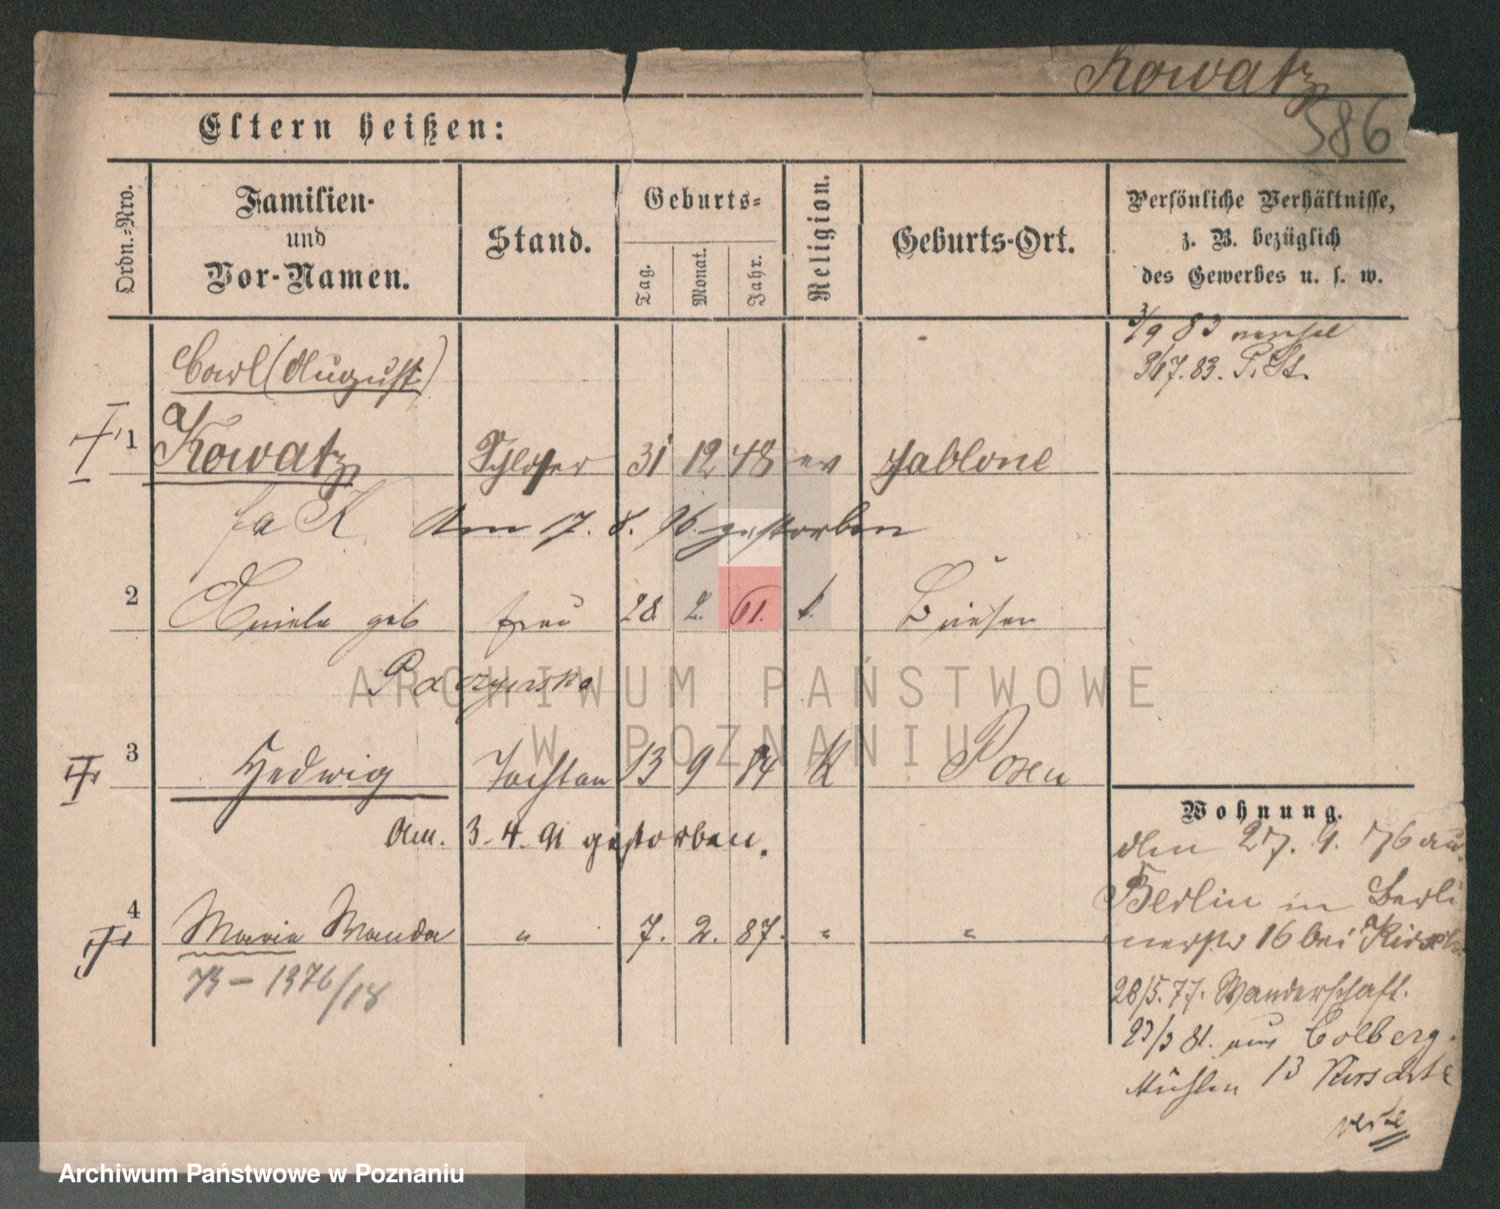 Kowatz
586
Eltern heißen:
Ordn.-Nro.
Familien-
und
Vor-Namen.
Stand.
Geburts-
Tag.
Monat.
Jahr.
Religion.
Geburts-Ort.
Persönliche Verhältnisse,
z. B. bezüglich
des Gewerbes u. s. w.
3/9 83
7.83. P. St.
Carl (August)
1 Kowatz Schlosser 31 12 48 ev Jablone
Am 17. 8. 96. gestorben
2 geb Frau 28. 2. 61. Briesen
3 Hedwig Tochter 13 9 84 K Posen
Am. 3. 4. 91 gestorben.
4 Maria Wanda " 7. 2. 87. " "
1376/18
Wohnung.
den 27. 9. 76 aus
Berlin in Berli
nerstr 16 bei
28/5. 77. Wanderschaft.
81. aus Colberg.
Mühlen 13
verte
ARCHIWUM PAŃSTWOWE
W POZNANIU
Archiwum Państwowe w Poznaniu